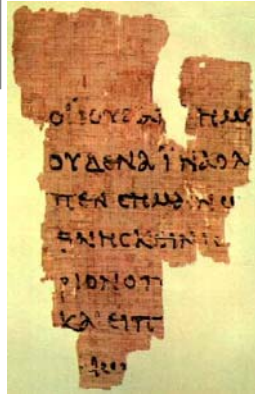 ΟΙ ΙΟΥΔΑΙ ΗΜΕ
ΟΥΔΕΝΑ ΪΝΑ Ο Λ
ΠΕΝ CΗΜΑΙΝΩ
ΘΝΗCΚΕΙΝ Ι
ΡΙΟΝ Ο Π
ΚΑΙ ΕΙΠ